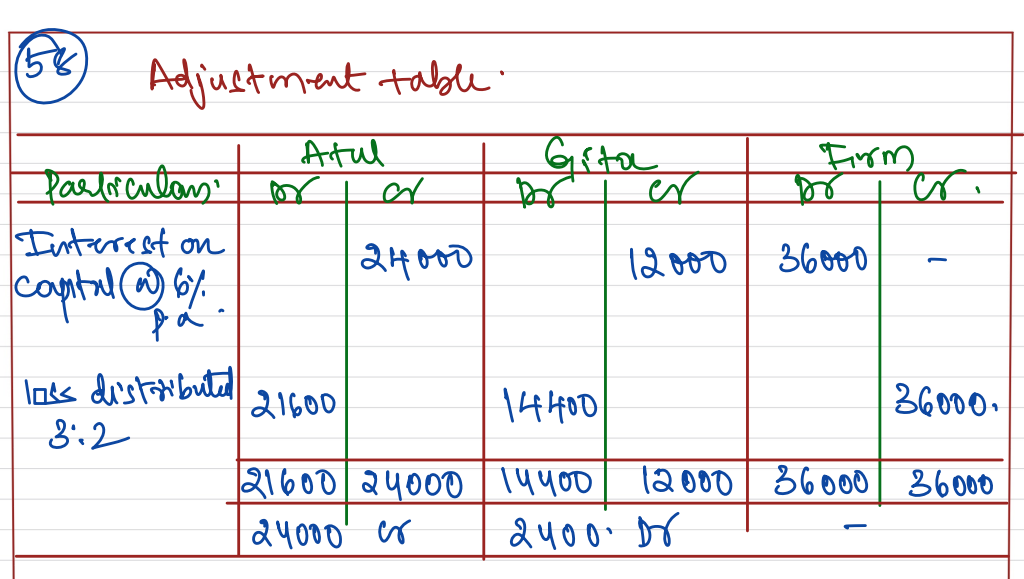 58
Adjustment table.
Atul Gita Firm
Particulars Dr Cr Dr Cr Dr Cr.
Interest on 24000 12000 36000 -
capital @ 6%
p.a.
loss distributed 21600 14400 36000.
3:2
21600 24000 14400 12000 36000 36000
24000 Cr 2400. Dr -